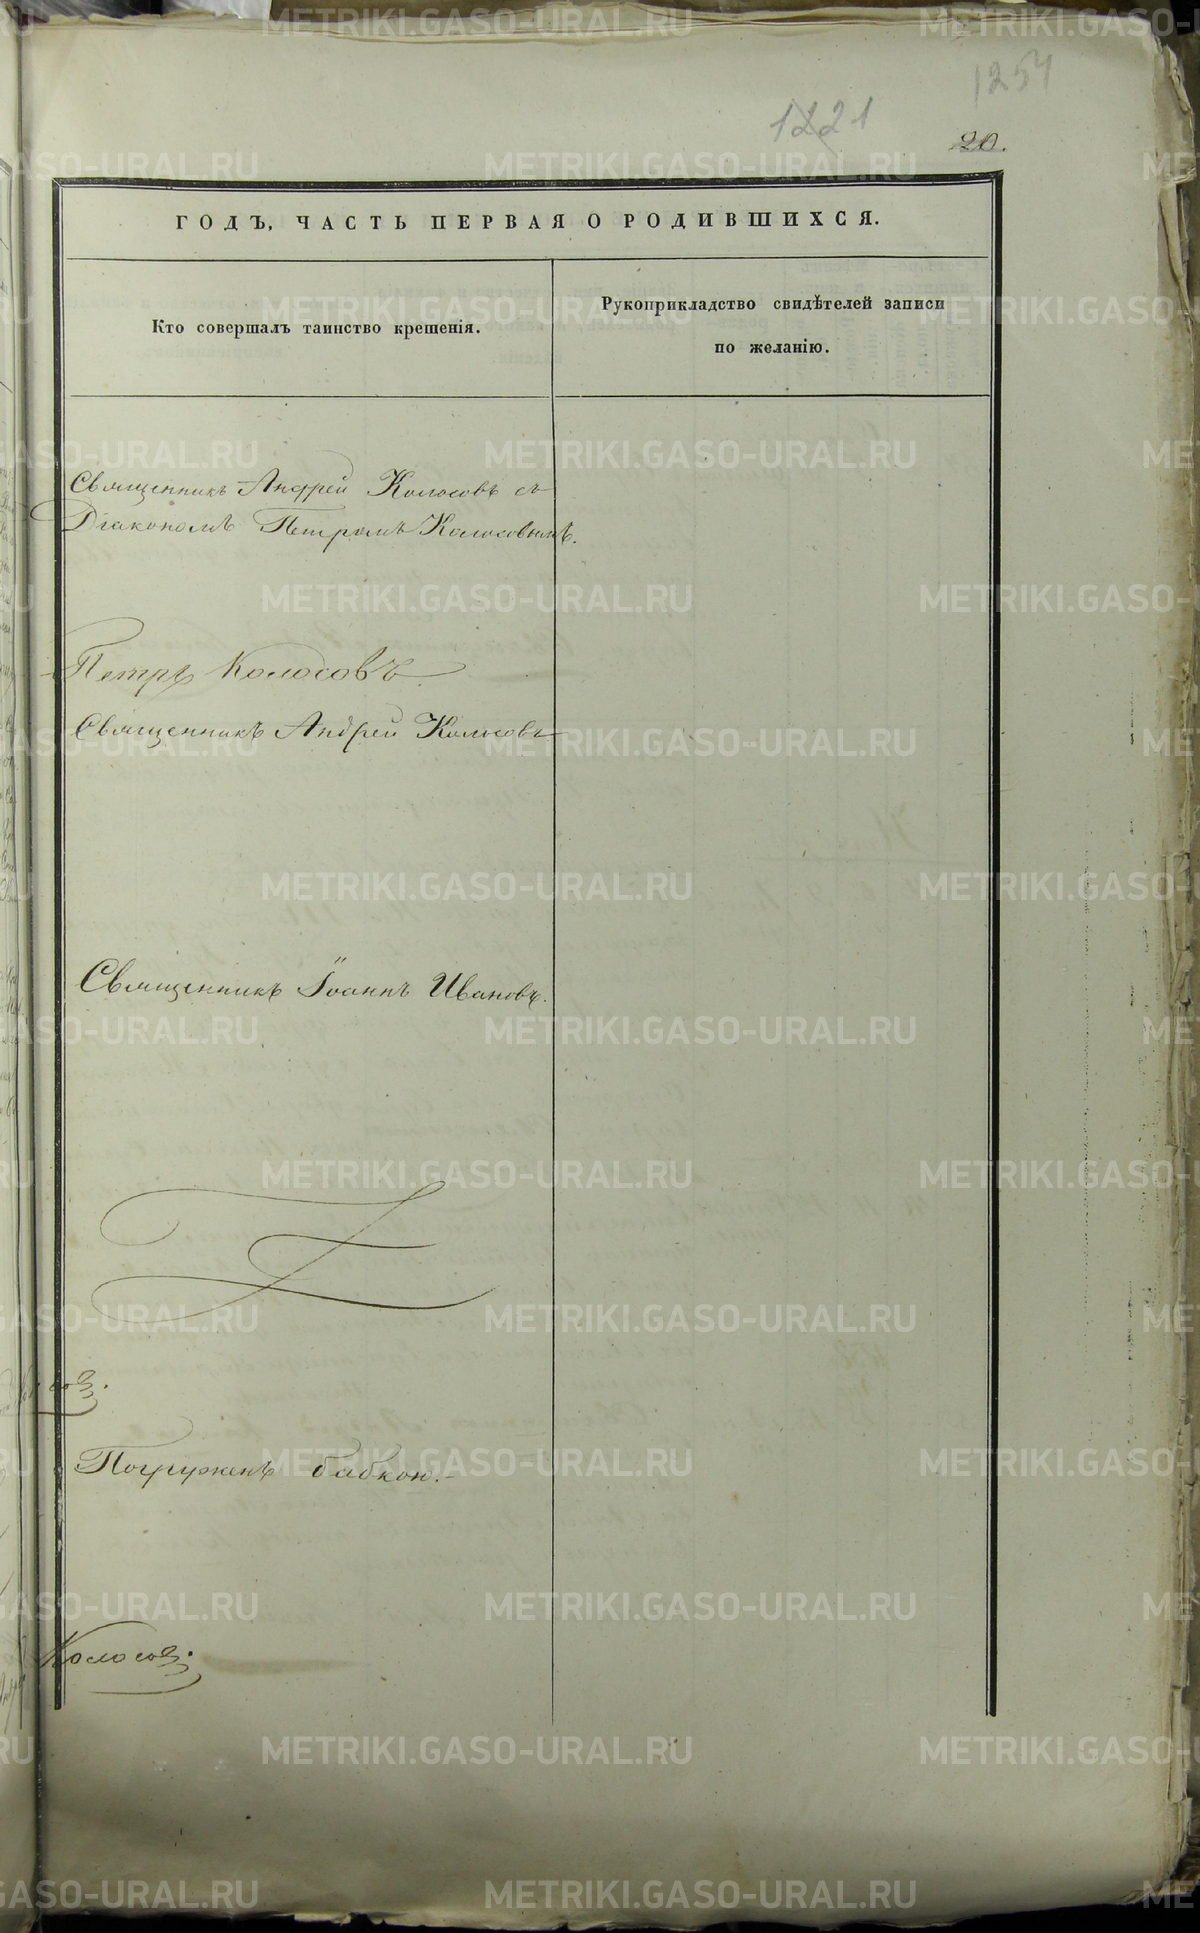 1254
1221
20.
ГОДЪ, ЧАСТЬ ПЕРВАЯ О РОДИВШИХСЯ.
Кто совершалъ таинство крещенія.
Рукоприкладство свидѣтелей записи
по желанію.
Священникъ Андрей Колосовъ съ
Діакономъ Петромъ Колосовымъ.
Петръ Колосовъ.
Священникъ Андрей Колосовъ
Священникъ Іоаннъ Ивановъ.
Погруженъ бабкою.
Колосов.
METRIKI.GASO-URAL.RU